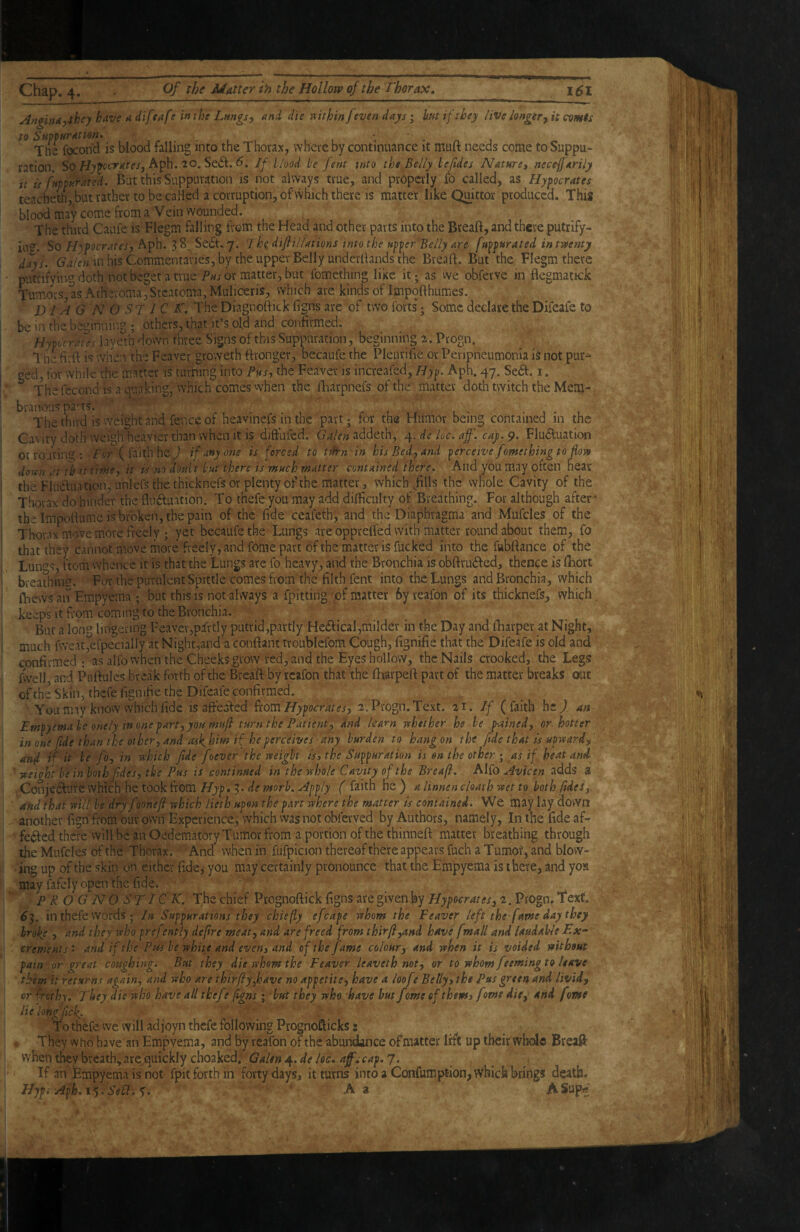 Chap. 4. Of the Matter in the Hollow of the Thorax. 161
Angina, they have a disease in the Lungs, and die within seven days; but if they live longer, it comes
to Suppuration.
The second is blood falling into the Thorax, where by continuance it must needs come to Suppu-
ration. So Hypocrates, Aph. 20. Sect. 6. If blood be sent into the Belly besides Nature, necessarily
it is suppurated. But this Suppuration is not always true, and properly so called, as Hypocrates
teacheth, but rather to be called a corruption, of which there is matter like Quittor produced. This
blood may come from a Vein wounded.
The third Cause is Flegm falling from the Head and other parts into the Breast, and there putrify-
ing. So Hypocrates, Aph. 38. Sect. 7. The distillations into the upper Belly are suppurated in twenty
days. Galen in his Commentaries, by the upper Belly understands the Breast. But the Flegm there
putrifying doth not beget a true Pus or matter, but something like it; as we observe in flegmatick
Tumors, as Atheroma, Steatoma, Meliceris, which are kinds of Imposthumes.
DIAGNOSTICK. The Diagnostick signs are of two sorts; Some declare the Disease to
be in the beginning; others, that it's old and confirmed.
Hypocrates layeth down three Signs of this Suppuration, beginning 2. Progn.
The first is when the Feaver groweth stronger, because the Pleurisie or Peripneumonia is not pur-
ged, for while the matter is turning into Pus, the Feaver is increased, Hyp. Aph. 47. Sect. 1.
The second is a quaking, which comes when the sharpness of the matter doth twitch the Mem-
branous parts.
The third is weight and sence of heaviness in the part; for the Humor being contained in the
Cavity doth weigh heavier than when it is diffused. Galen addeth, 4. de loc. aff. cap. 9. Fluctuation
or roaring: For (saith he) if any one is forced to turn in his Bed, and perceive something to flow
down at that time, it is no doubt but there is much matter contained there. And you may often hear
the Fluctuation, unless the thickness or plenty of the matter, which fills the whole Cavity of the
Thorax do hinder the fluctuation. To these you may add difficulty of Breathing. For although after
the Imposthume is broken, the pain of the side ceaseth, and the Diaphragma and Muscles of the
Thorax move more freely; yet because the Lungs are oppressed with matter round about them, so
that they cannot move more freely, and some part of the matter is sucked into the substance of the
Lungs, from whence it is that the Lungs are so heavy, and the Bronchia is obstructed, thence is short
breathing. For the purulent Spittle comes from the filth sent into the Lungs and Bronchia, which
shews an Empyema; but this is not always a spitting of matter by reason of its thickness, which
keeps it from coming to the Bronchia.
But a long lingering Feaver, partly putrid, partly Hectical, milder in the Day and sharper at Night,
much sweat, especially at Night, and a constant troublesom Cough, signifie that the Disease is old and
confirmed; as also when the Cheeks grow red, and the Eyes hollow, the Nails crooked, the Legs
swell, and Pustules break forth of the Breast by reason that the sharpest part of the matter breaks out
of the Skin, these signifie the Disease confirmed.
You may know which side is affected from Hypocrates, 2. Progn. Text. 21. If (saith he) an
Empyema be onely in one part, you must turn the Patient, and learn whether he be pained, or hotter
in one side than the other, and ask him if he perceives any burden to hang on the side that is upward,
and if it be so, in which side soever the weight is, the Suppuration is on the other; as if heat and
weight be in both sides, the Pus is continued in the whole Cavity of the Breast. Also Avicen adds a
Conjecture which he took from Hyp. 3. de morb. Apply (saith he) a linnen cloath wet to both sides,
and that will be dry soonest which lieth upon the part where the matter is contained. We may lay down
another sign from our own Experience, which was not observed by Authors, namely, In the side af-
fected there will be an Oedematory Tumor from a portion of the thinnest matter breathing through
the Muscles of the Thorax. And when in suspicion thereof there appears such a Tumor, and blow-
ing up of the skin on either side, you may certainly pronounce that the Empyema is there, and you
may safely open the side.
PROGNOSTICK. The chief Prognostick signs are given by Hypocrates, 2. Progn. Text.
63. in these words; In Suppurations they chiefly escape whom the Feaver left the same day they
broke, and they who presently desire meat, and are freed from thirst, and have small and laudable Ex-
crements: and if the Pus be white and even, and of the same colour, and when it is voided without
pain or great coughing. But they die whom the Feaver leaveth not, or to whom seeming to leave
them it returns again, and who are thirsty, have no appetite, have a loose Belly, the Pus green and livid,
or frothy. They die who have all these signs; but they who have but some of them, some die, and some
lie long sick.
To these we will adjoyn these following Prognosticks:
They who have an Empyema, and by reason of the abundance of matter lift up their whole Breast
when they breath, are quickly choaked. Galen 4. de loc. aff. cap. 7.
If an Empyema is not spit forth in forty days, it turns into a Consumption, which brings death.
Hyp. Aph. 15. Sect. 5. A a A Sup-